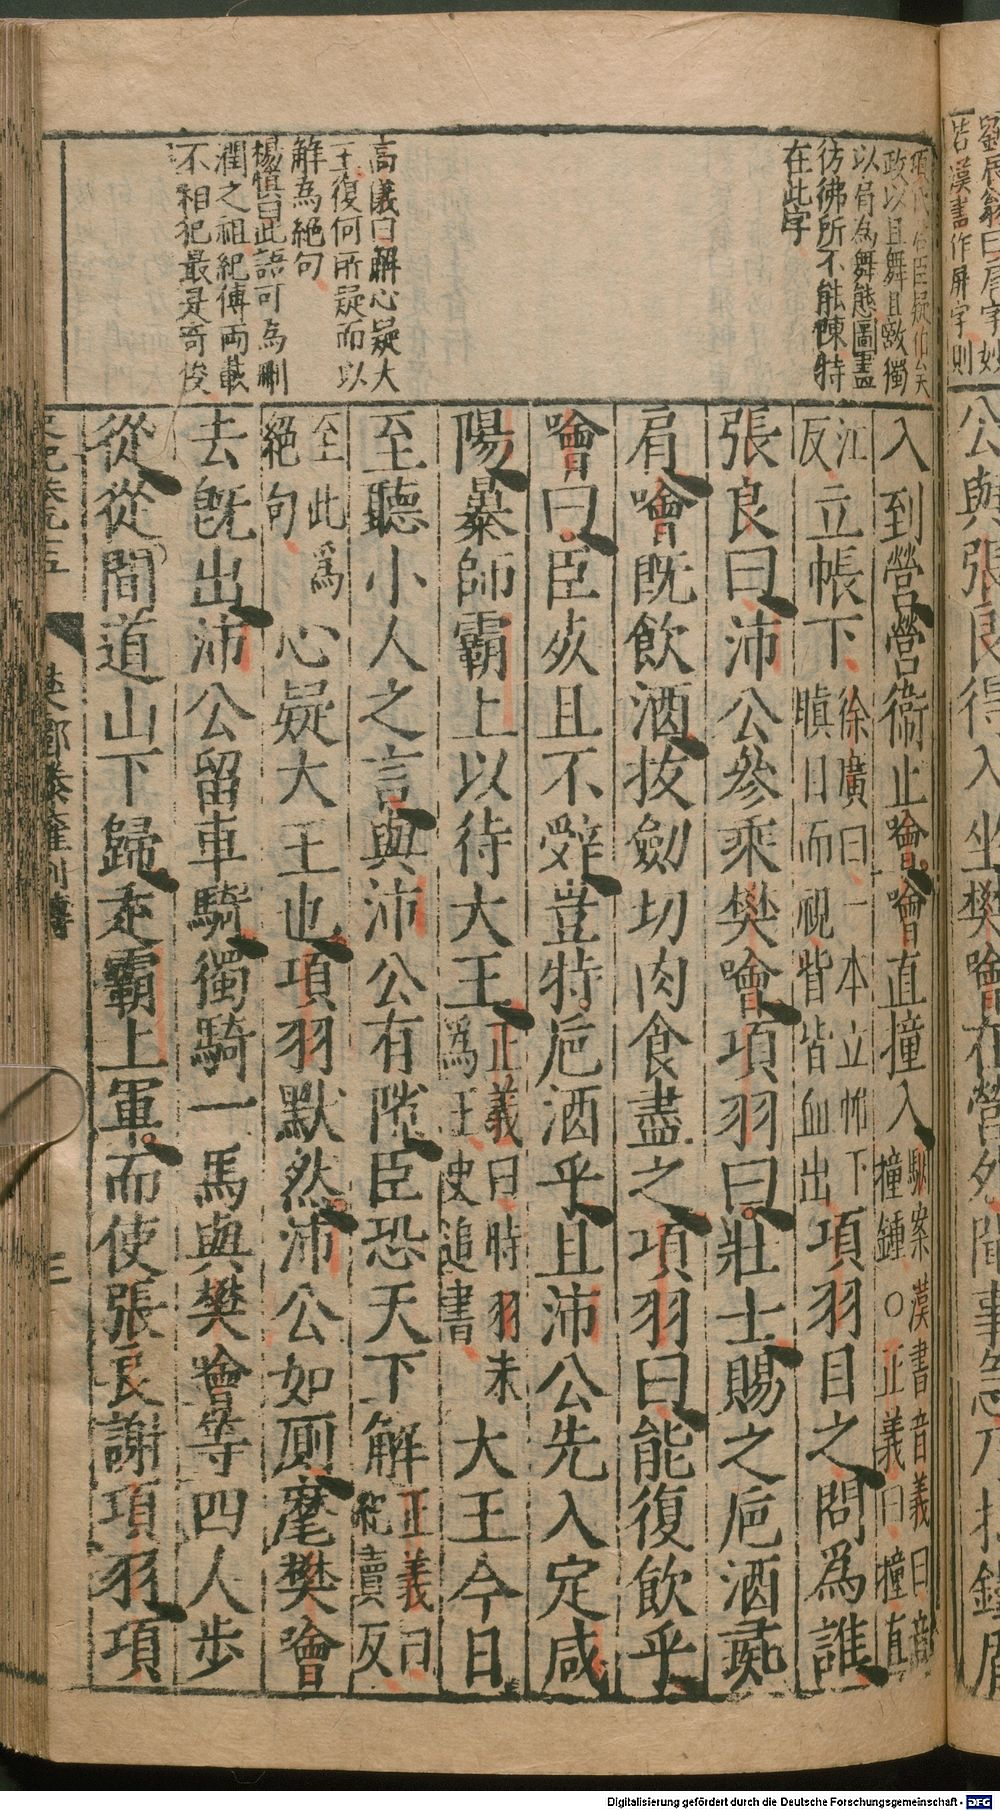 劉辰翁曰盾字妙
若漢書作屏字則
公與張良得入坐樊噲在營外聞事急乃持鐵盾
政以且舞且敵獨
以肩為舞態圖畫
彷彿所不能陳時
在此字
高儀曰解心疑大
王復何所疑而以
解為絕句
楊慎曰此語可為刪
潤之祖紀傳兩載
不相犯最是奇俊
入到營營衛止噲噲直撞入
駰案漢書音義曰音
撞鍾○正義曰撞直
江
反立帳下
徐廣曰一本立帷下
瞋目而視眥皆血出
項羽目之問為誰
張良曰沛公參乘樊噲項羽曰壯士賜之卮酒彘
肩噲既飲酒拔劍切肉食盡之項羽曰能復飲乎
噲曰臣死且不辤豈特卮酒乎且沛公先入定咸
陽暴師霸上以待大王
正義曰時羽未
為王史追書
大王今日
至聽小人之言與沛公有隙臣恐天下解
正義曰
紀賣反
至此為
絕句
心疑大王也項羽默然沛公如厠麾樊噲
去旣出沛公留車騎獨騎一馬與樊噲等四人步
從從間道山下歸走霸上軍而使張良謝項羽項
史記卷九十五
樊酈滕灌列傳
三
Digitalisierung gefördert durch die Deutsche Forschungsgemeinschaft - DFG